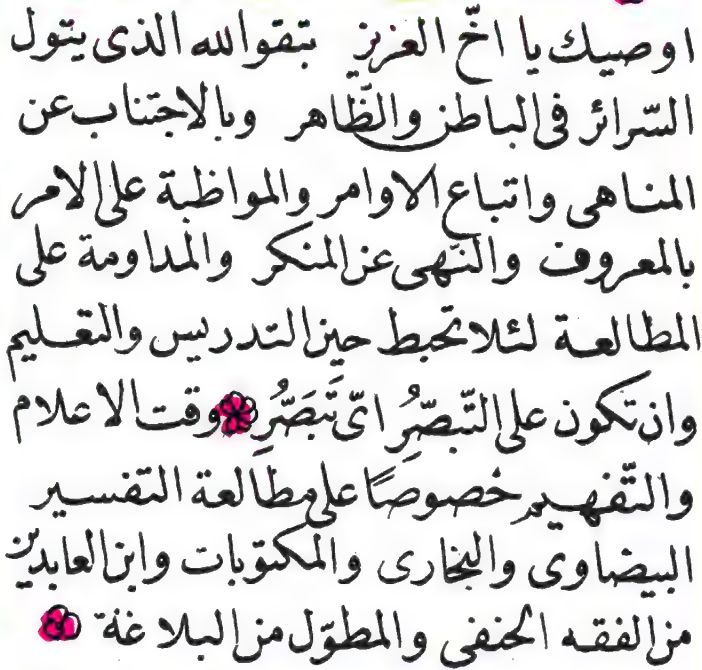 اوصيك يا اخّ العزيز بتقوالله الذى يتول
السّرائر فى الباطن والظّاهر وبالاجتناب عن
المناهى واتباع الاوامر والمواظبة على الامر
بالمعروف والنّهى عن المنكر والمداومة على
المطالعة لئلا تحبط حين التدريس والتعليم
وان تكون على التّبصّرِ اىّ تَبَصُّرٍ وقت الاعلام
والتّفهيم خصوصًا على مطالعة التفسير
البيضاوى والبخارى والمكتوبات وابن العابدين
من الفقه الحنفى والمطوّل من البلاغة